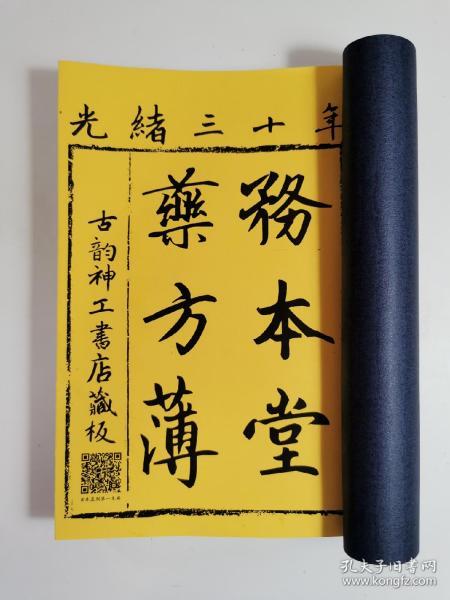 光緒三十年
務本堂
藥方薄
古韵神工書店藏板
孔夫子旧书网
www.kongfz.com